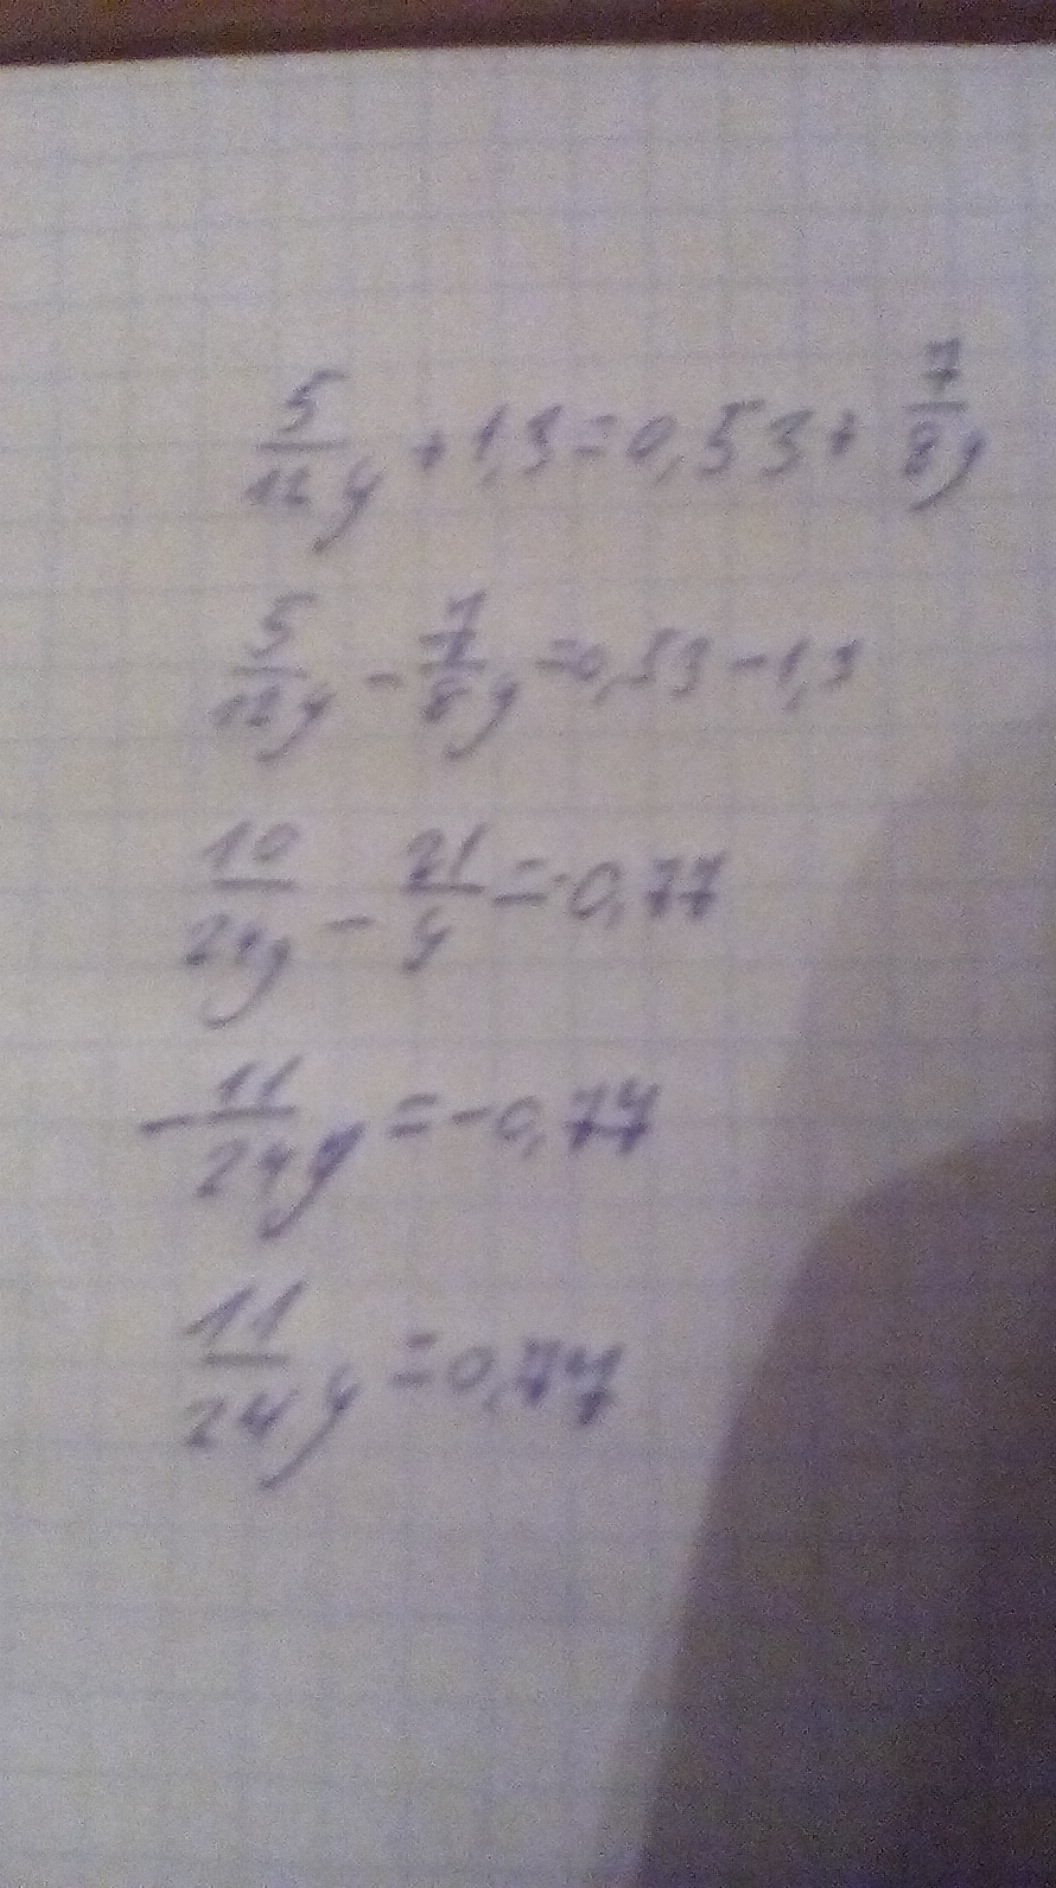 5/12 y + 1,3 = 0,53 + 7/8 y
5/12 y - 7/8 y = 0,53 - 1,3
10/24 y - 21/y = -0,77
- 11/24 y = -0,77
11/24 y = 0,77